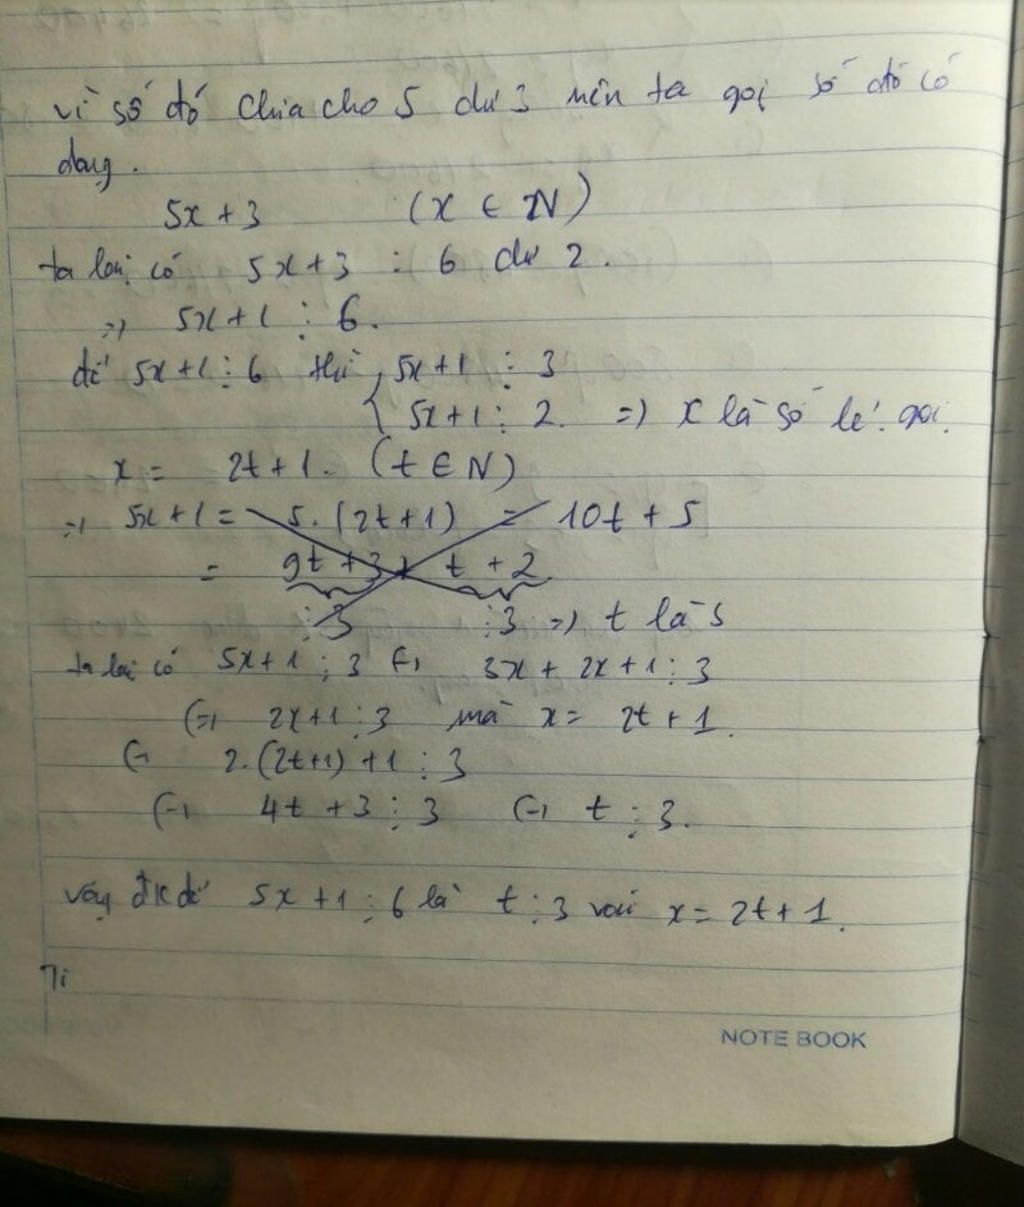 vì số đó chia cho 5 dư 3 nên ta gọi số đó có
dạng.
5x + 3 (x ∈ N)
ta lại có 5x + 3 : 6 dư 2.
=> 5x + 1 ⋮ 6.
để 5x + 1 ⋮ 6 thì { 5x + 1 ⋮ 3
5x + 1 ⋮ 2. => x là số lẻ. gọi
x = 2t + 1. (t ∈ N)
=> 5x + 1 = 5. (2t + 1) = 10t + 5
= 9t + 3 + t + 2
⋮ 3 ⋮ 3 => t là s
ta lại có 5x + 1 ⋮ 3 (=) 3x + 2x + 1 ⋮ 3
(=) 2x + 1 ⋮ 3 mà x = 2t + 1.
(=) 2.(2t+1) + 1 ⋮ 3
(=) 4t + 3 ⋮ 3 (=) t ⋮ 3.
vậy đk để 5x + 1 ⋮ 6 là t ⋮ 3 với x = 2t + 1.
Ti
NOTE BOOK